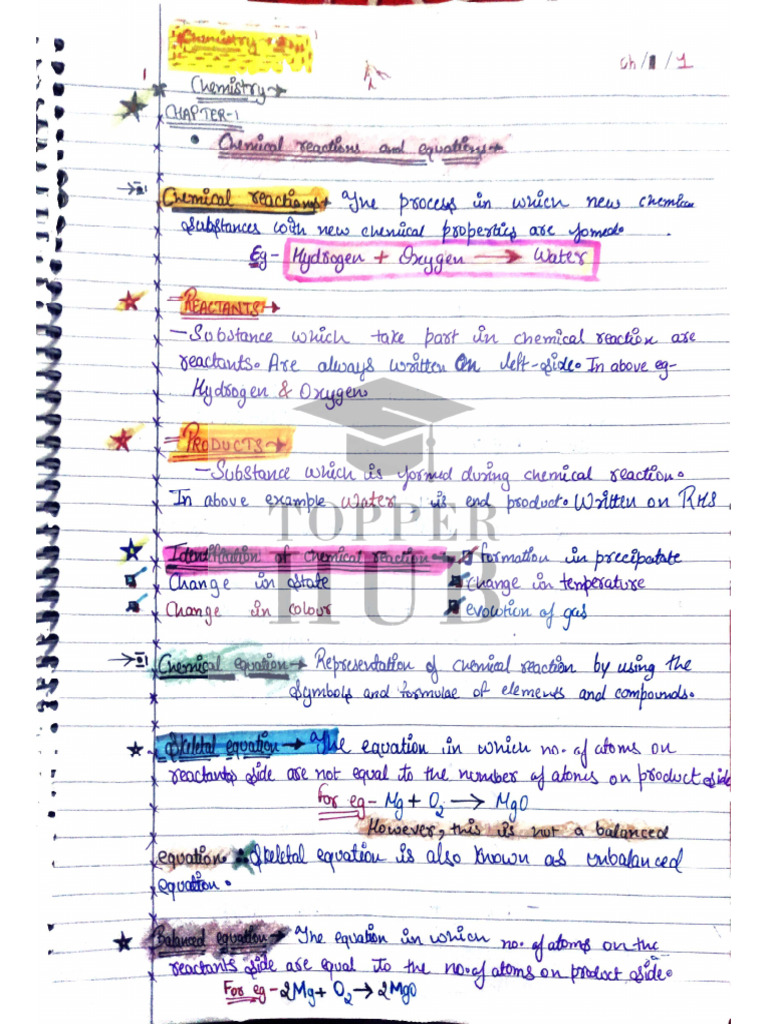 Chemistry
Ch/1/1
Chemistry→
CHAPTER-1
• Chemical reactions and equations→
Chemical reactions→ The process in which new chemical
substances with new chemical properties are formed.
Eg- Hydrogen + Oxygen → Water
=REACTANTS→
- Substance which take part in chemical reaction are
reactants. Are always written on left-side. In above eg-
Hydrogen & Oxygen
=PRODUCTS→
- Substance which is formed during chemical reaction.
In above example Water, is end product. Written on RHS
Identification of chemical reaction→ formation in precipatate
Change in state change in temperature
Change in colour evolution of gas
Chemical equation→ Representation of chemical reaction by using the
symbols and formulae of elements and compounds.
Skeletal equation→ The equation in which no. of atoms on
reactants side are not equal to the number of atoms on product side
For eg- Mg + O₂ → MgO
However, this is not a balanced
equation. ∴ Skeletal equation is also known as unbalanced
equation.
Balanced equation→ The equation in which no. of atoms on the
reactants side are equal to the no. of atoms on product side.
For eg- 2Mg + O₂ → 2MgO
TOPPER
HUB